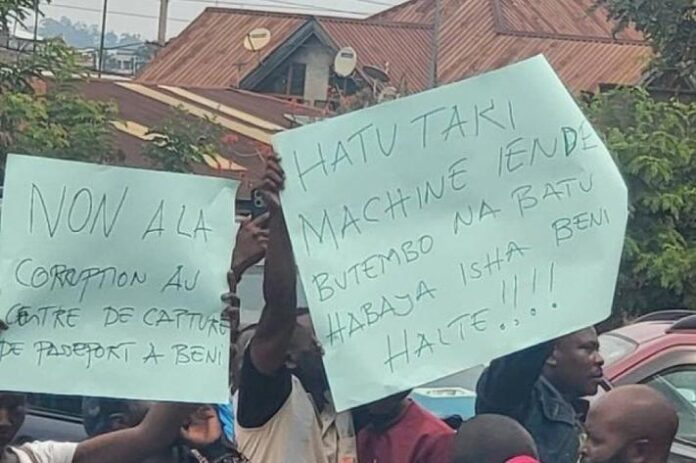 NON A LA
CORRUPTION AU
CENTRE DE CAPTURE
DE PASSEPORT A BENI
HATU TAKI
MACHINE IENDE
BUTEMBO NA BATU
HABAYA ISHA BENI
HALTE !..!!!